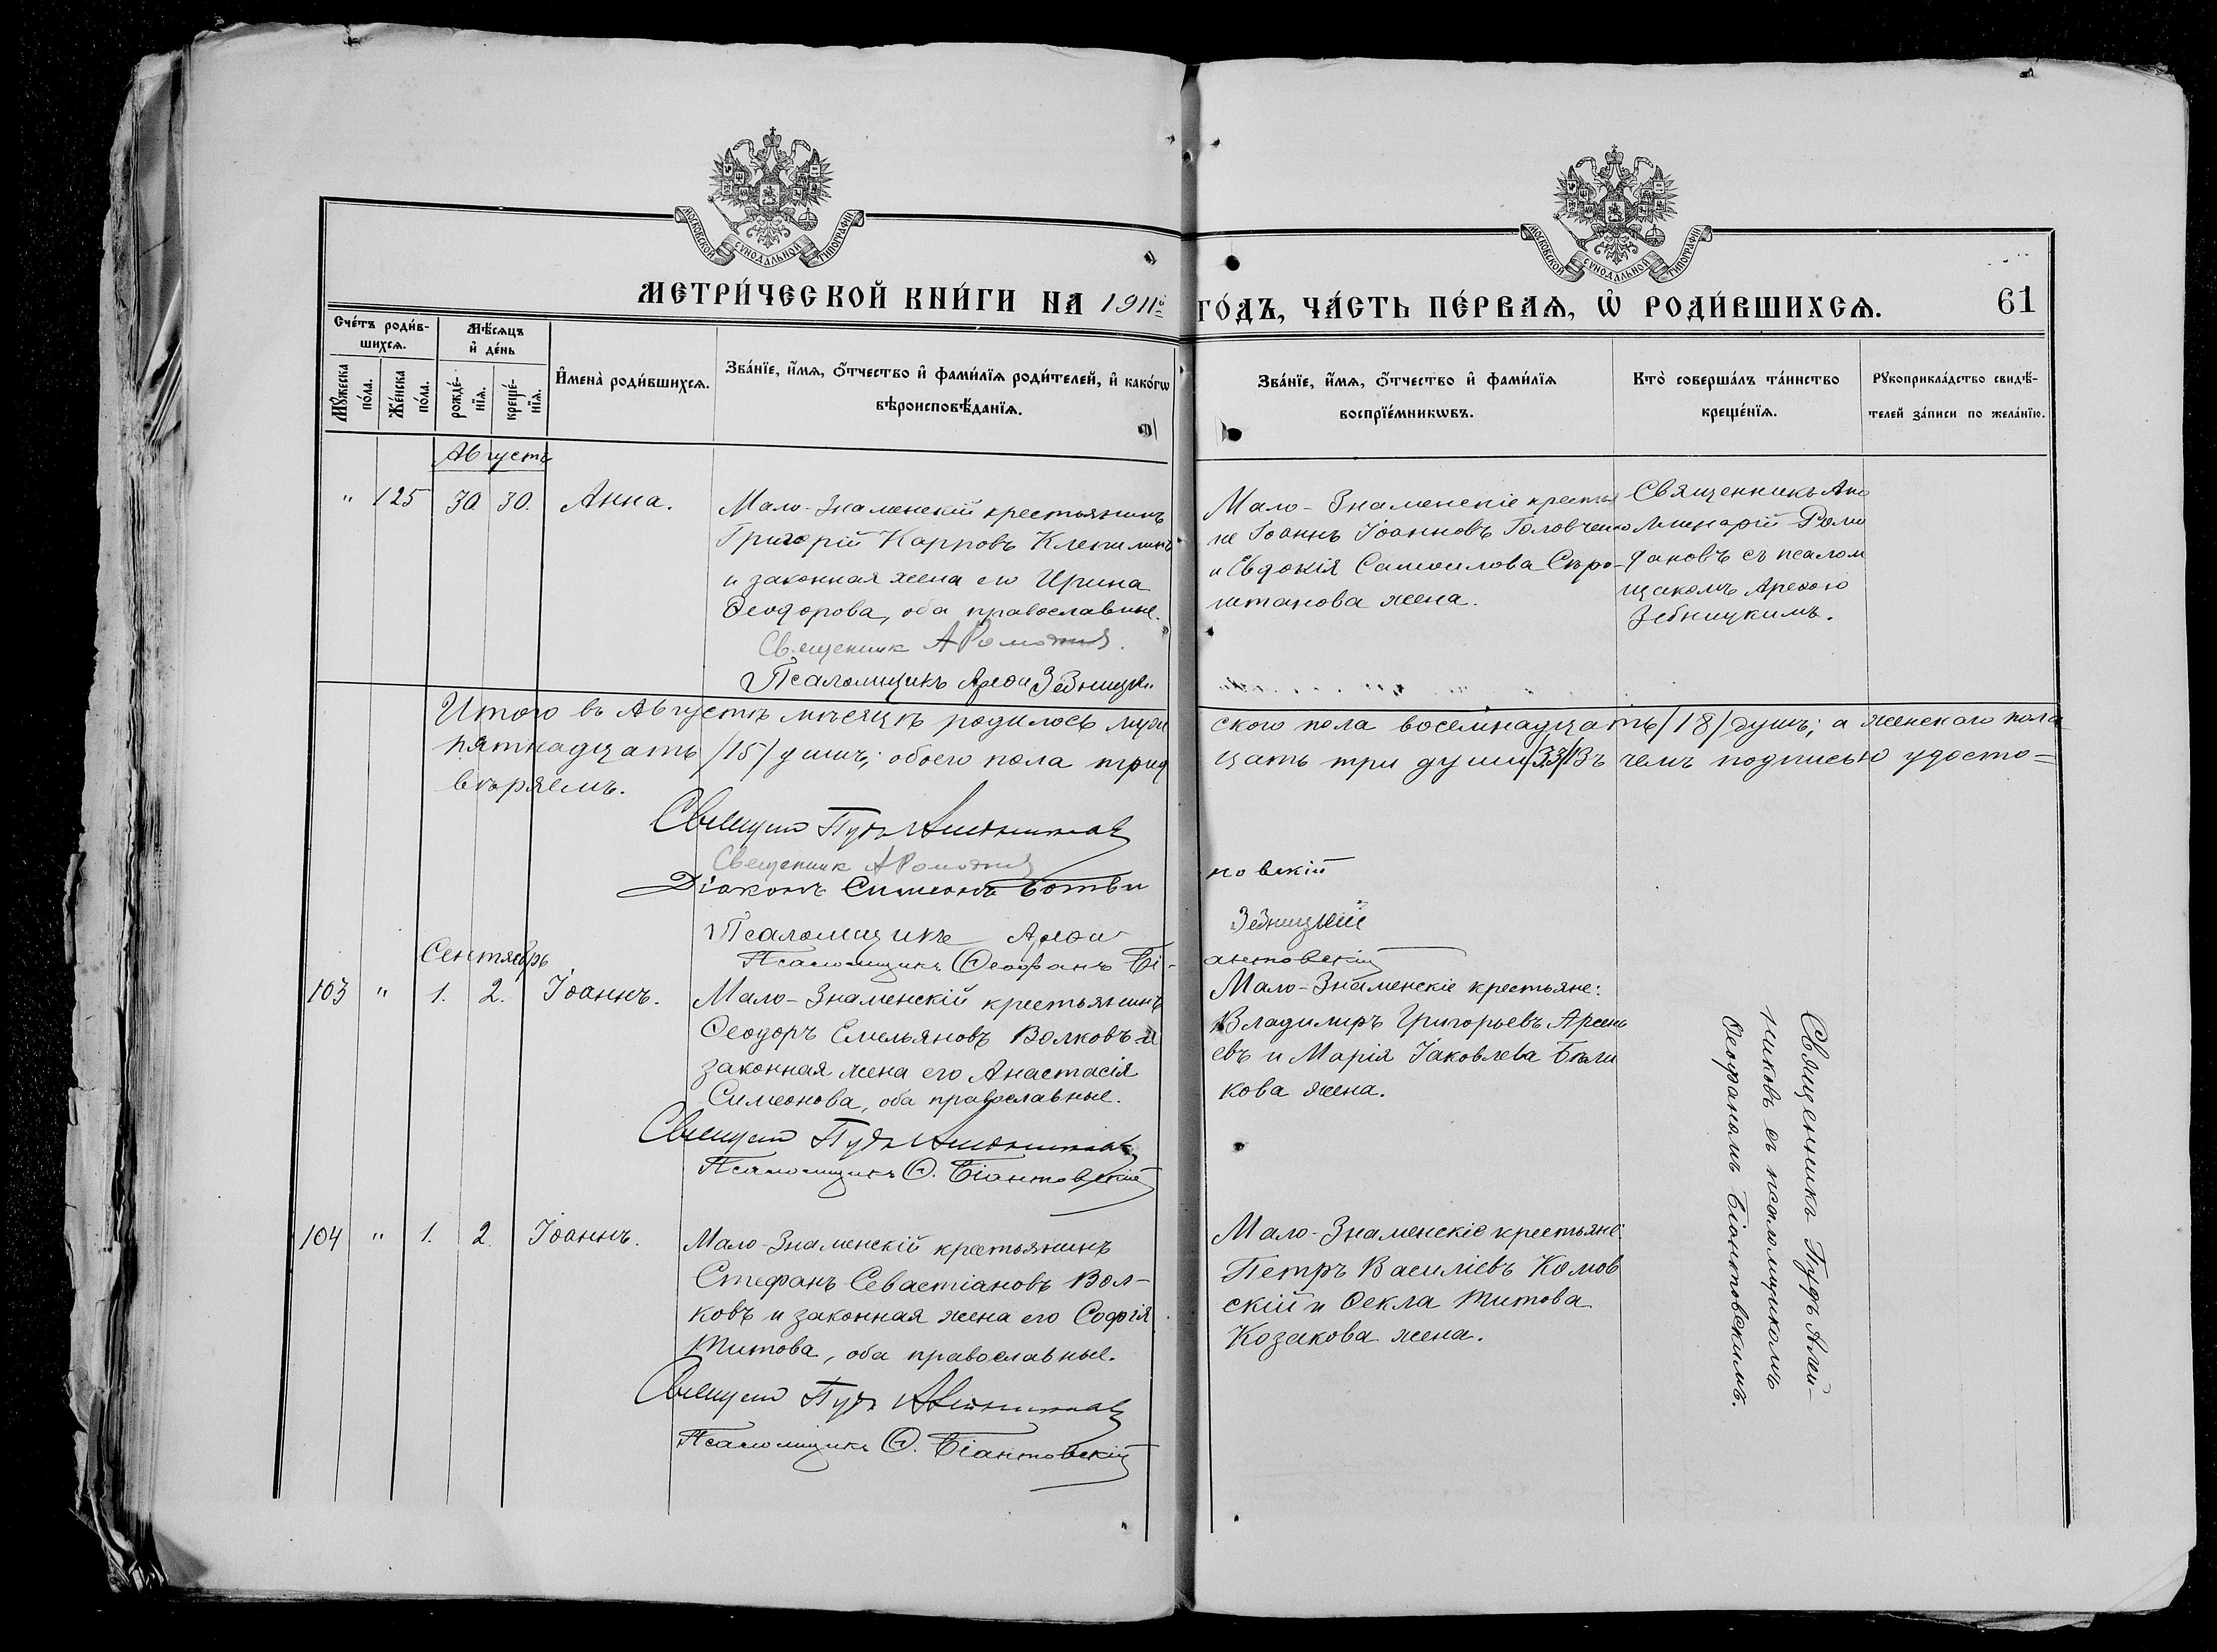 МОСКОВСКОЙ СѴНОДАЛЬНОЙ ТИПОГРАФІИ
МОСКОВСКОЙ СѴНОДАЛЬНОЙ ТИПОГРАФІИ
МЕТРИ́ЧЕСКОЙ КНИ́ГИ НА 1911й
ГО́ДЪ, ЧА́СТЬ ПЕ́РВАѦ, Ѡ҆ РОДИ́ВШИХСѦ.
61
Сче́тъ роди́в-
шихсѧ.
Мꙋ́жеска по́ла.
Же́нска по́ла.
Мѣ́сѧцъ
и҆ де́нь
рожде́-
нїѧ.
креще́-
нїѧ.
И҆мена̀ роди́вшихсѧ.
Зва́нїе, и҆́мѧ, о҆́тчество и҆ фами́лїѧ роди́телей, и҆ како́гѡ
вѣроисповѣ́данїѧ.
Зва́нїе, и҆́мѧ, о҆́тчество и҆ фами́лїѧ
воспрїе́мникѡвъ.
Кто̀ соверша́лъ та́инство
креще́нїѧ.
Рꙋкоприкла́дство свидѣ́-
телей за́писи по жела́нїю.
Августъ
" 125 30 30. Анна.
Мало-Знаменскій крестьянинъ
Григорій Карповъ Клепилинъ
и законная жена его Ирина
Ѳеодорова, оба православные.
Священник А Ромоданов.
Псаломщикъ Ареѳа Зебницкій
Мало-Знаменскіе крестья
не Іоаннъ Іоанновъ Головченко
и Евдокія Самоилова Сѣро-
штанова жена.
Священникъ Апо
ллинарій Ромо
дановъ съ псалом
щикомъ Ареѳою
Зебницкимъ.
Итого въ Августѣ мѣсяцѣ родилось муж
ского пола восемнадцать /18/ душъ; а женскаго пола
пятнадцать /15/ душъ; обоего пола трид
цать три души /33/. Въ чемъ подписью удосто=
вѣряемъ.
Священ Пудъ Алейников
Священник А Ромоданов
Діаконъ Симеонъ Ботви
новскій
Псаломщикъ Ареѳа
Зебницкій
Псаломщикъ Ѳеофанъ Бі-
антовскій
Сентябрь
103 " 1. 2. Іоаннъ.
Мало-Знаменскій крестьянинъ
Ѳеодоръ Емельяновъ Волковъ и
законная жена его Анастасія
Симеонова, оба православные.
Священ Пудъ Алейников
Псаломщикъ Ѳ. Біантовскій
Мало-Знаменскіе крестьяне:
Владимиръ Григорьевъ Арсень
евъ и Марія Іаковлева Бѣли
кова жена.
Священникъ Пудъ Алей-
никовъ съ псаломщикомъ
Ѳеофаномъ Біантовскимъ.
104 " 1. 2. Іоаннъ.
Мало-Знаменскій крестьянинъ
Стефанъ Севастіановъ Вол-
ковъ и законная жена его Софія
Титова, оба православные.
Священ Пудъ Алейников
Псаломщикъ Ѳ. Біантовскій
Мало-Знаменскіе крестьяне:
Петръ Василіевъ Комов
скій и Ѳекла Титова
Козакова жена.